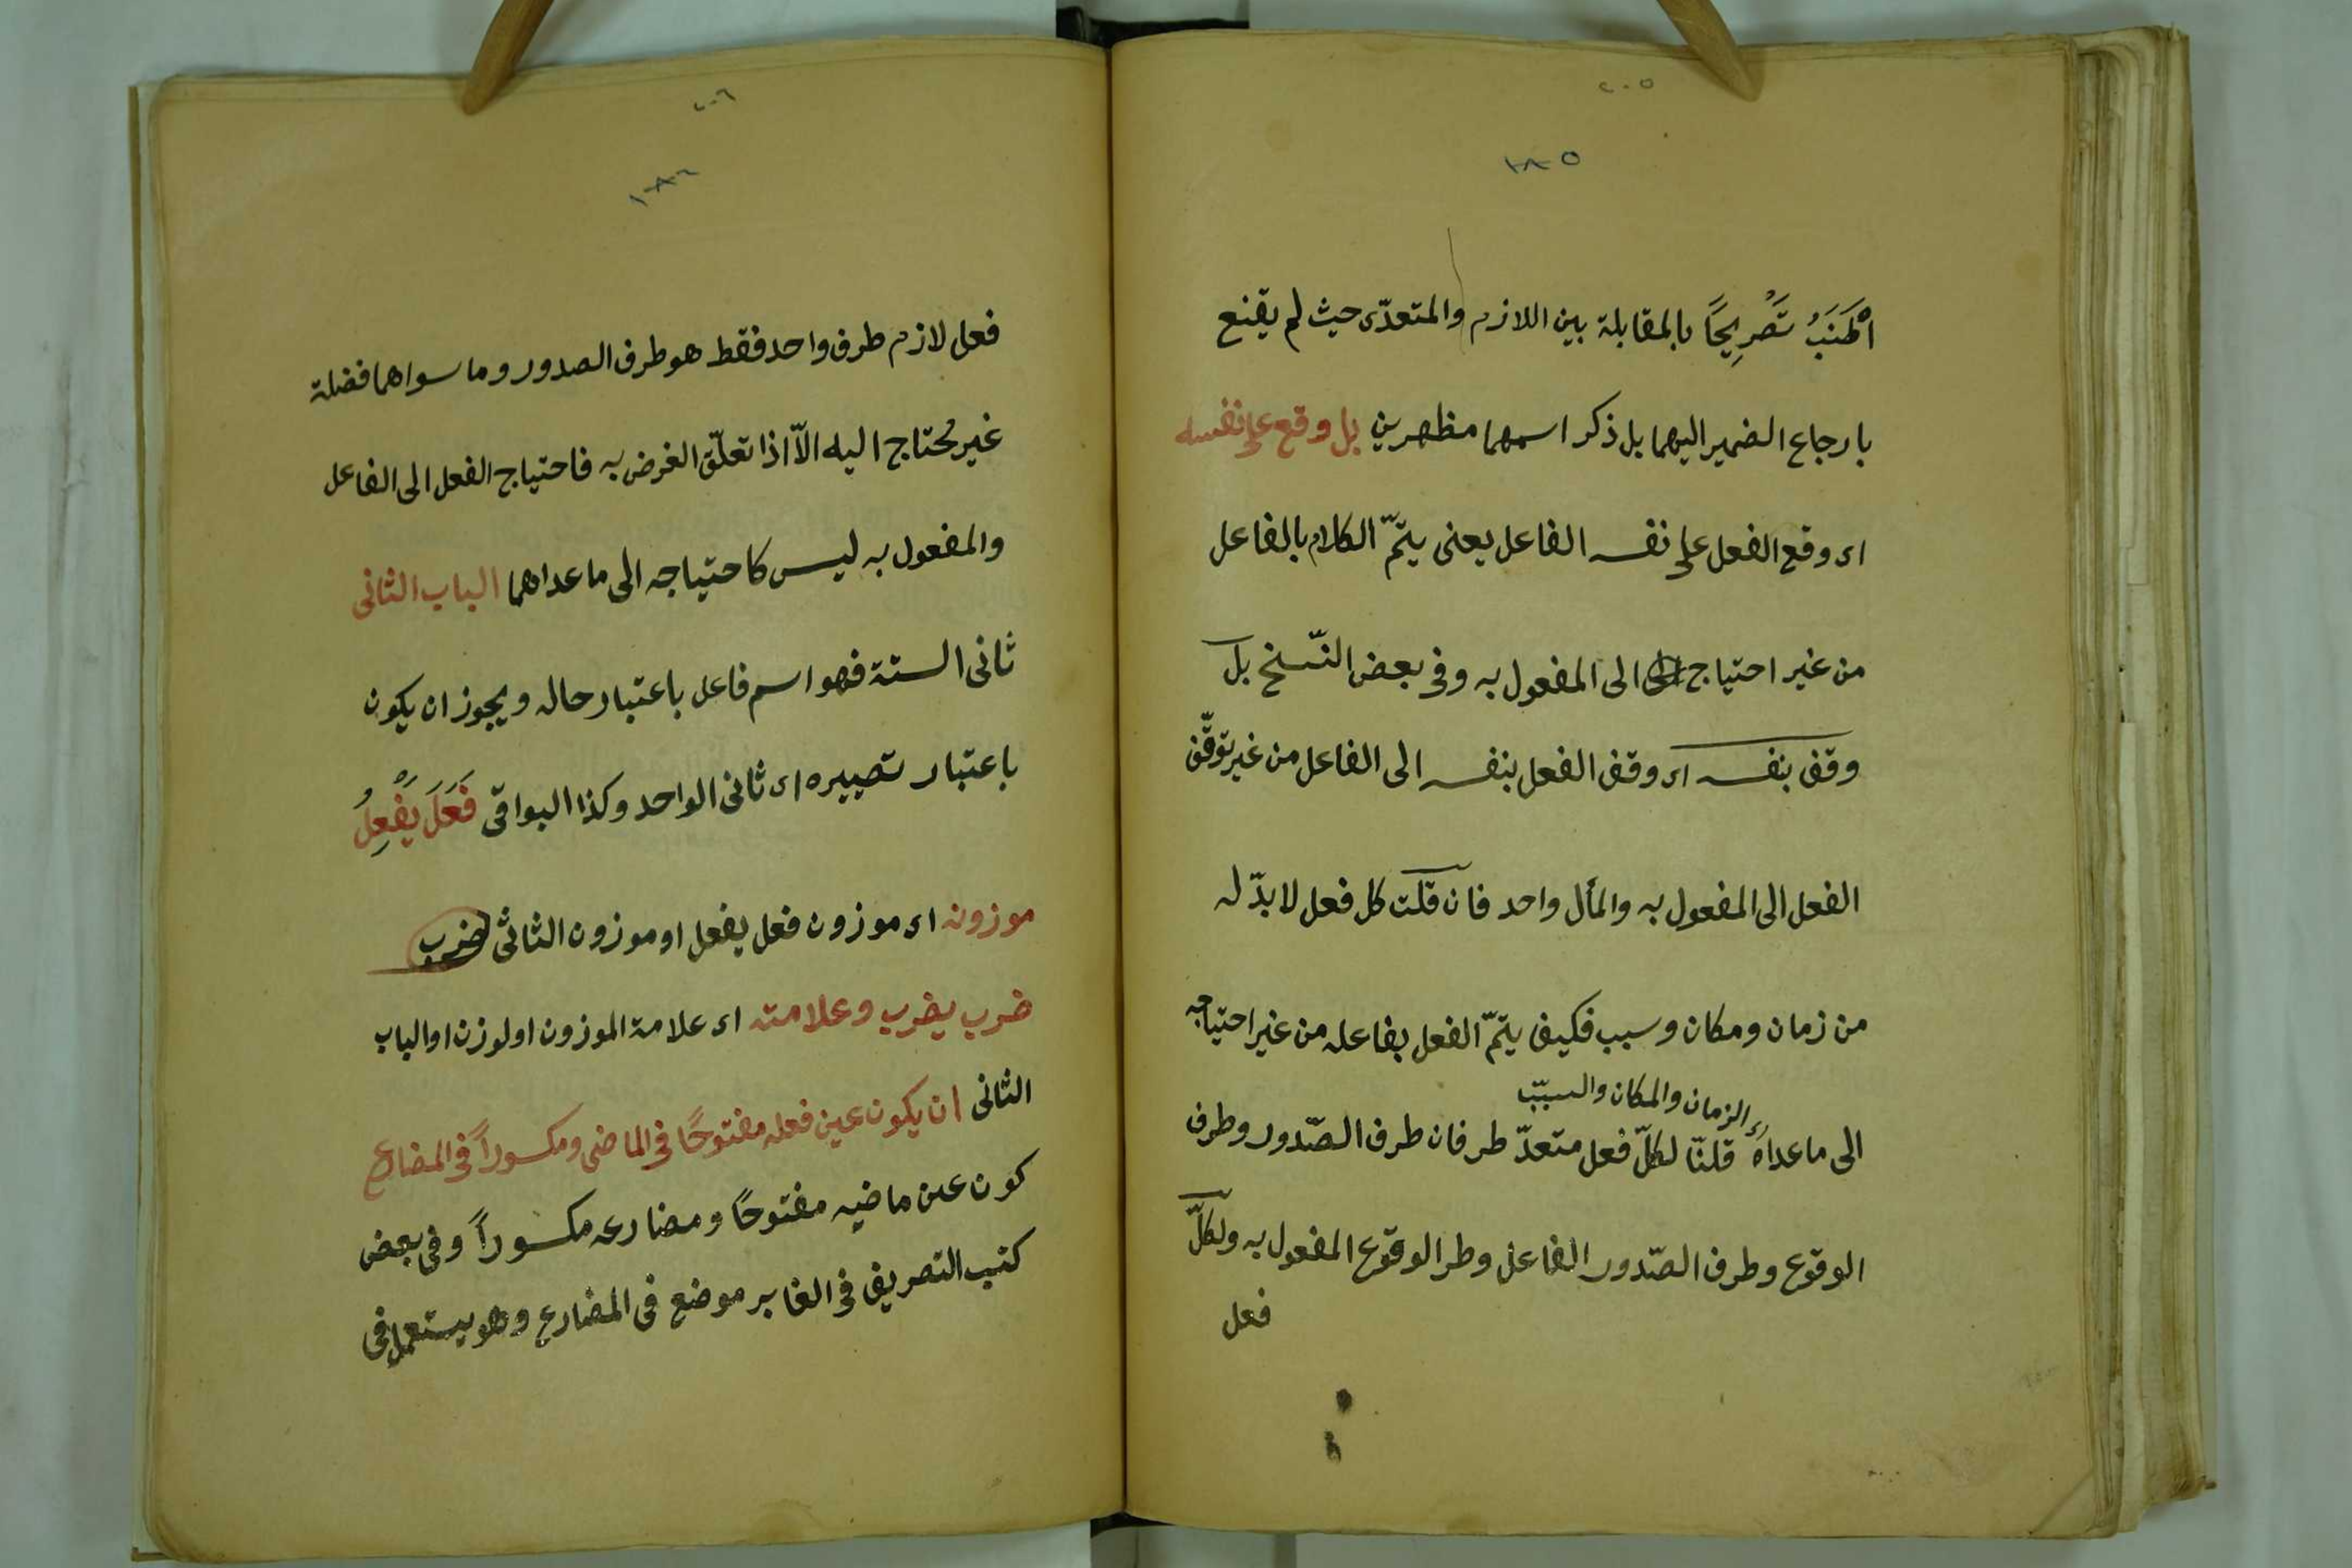 ٢٠٥
١٨٥
اَطْنَبَ تَصْرِيحًا بالمقابلة بين اللازم والمتعدّى حيث لم يقنع
بارجاع الضمير اليهما بل ذكر اسمهما مظهرين بل وقع على نفسه
اى وقع الفعل على نفسه الفاعل يعنى يتمّ الكلام بالفاعل
من غير احتياج الى المفعول به وفى بعض النّسخ بل
وقف بنفسه اى وقف الفعل بنفسه الى الفاعل من غير توقّف
الفعل الى المفعول به والمأل واحد فان قلت كل فعل لا بدّ له
من زمان ومكان وسبب فكيف يتمّ الفعل بفاعله من غير احتياجه
اى الزمان والمكان والسبب
الى ما عداه قلنا لكلّ فعل متعدّ طرفان طرف الصّدور وطرف
الوقوع وطرف الصّدور الفاعل وطر الوقوع المفعول به ولكلّ
فعل
٢٠٦
١٨٦
فعل لازم طرف واحد فقط هو طرف الصدور وما سواهما فضلة
غير محتاج اليه الاّ اذا تعلّق الغرض به فاحتياج الفعل الى الفاعل
والمفعول به ليس كاحتياجه الى ما عداهما الباب الثانى
ثانى الستة فهو اسم فاعل باعتبار حاله ويجوز ان يكون
باعتبار تصييره اى ثانى الواحد وكذا البواقى فَعَلَ يَفْعِلُ
موزونه اى موزون فعل يفعل او موزون الثانى ضرب
ضرب يضرب وعلامته اى علامة الموزون اولوزن او الباب
الثانى ان يكون عين فعله مفتوحًا فى الماضى ومكسوراً فى المضارع
كون عين ماضيه مفتوحًا ومضارعه مكسوراً وفى بعض
كتب التصريف فى الغابر موضع فى المضارع وهو يستعمل فى